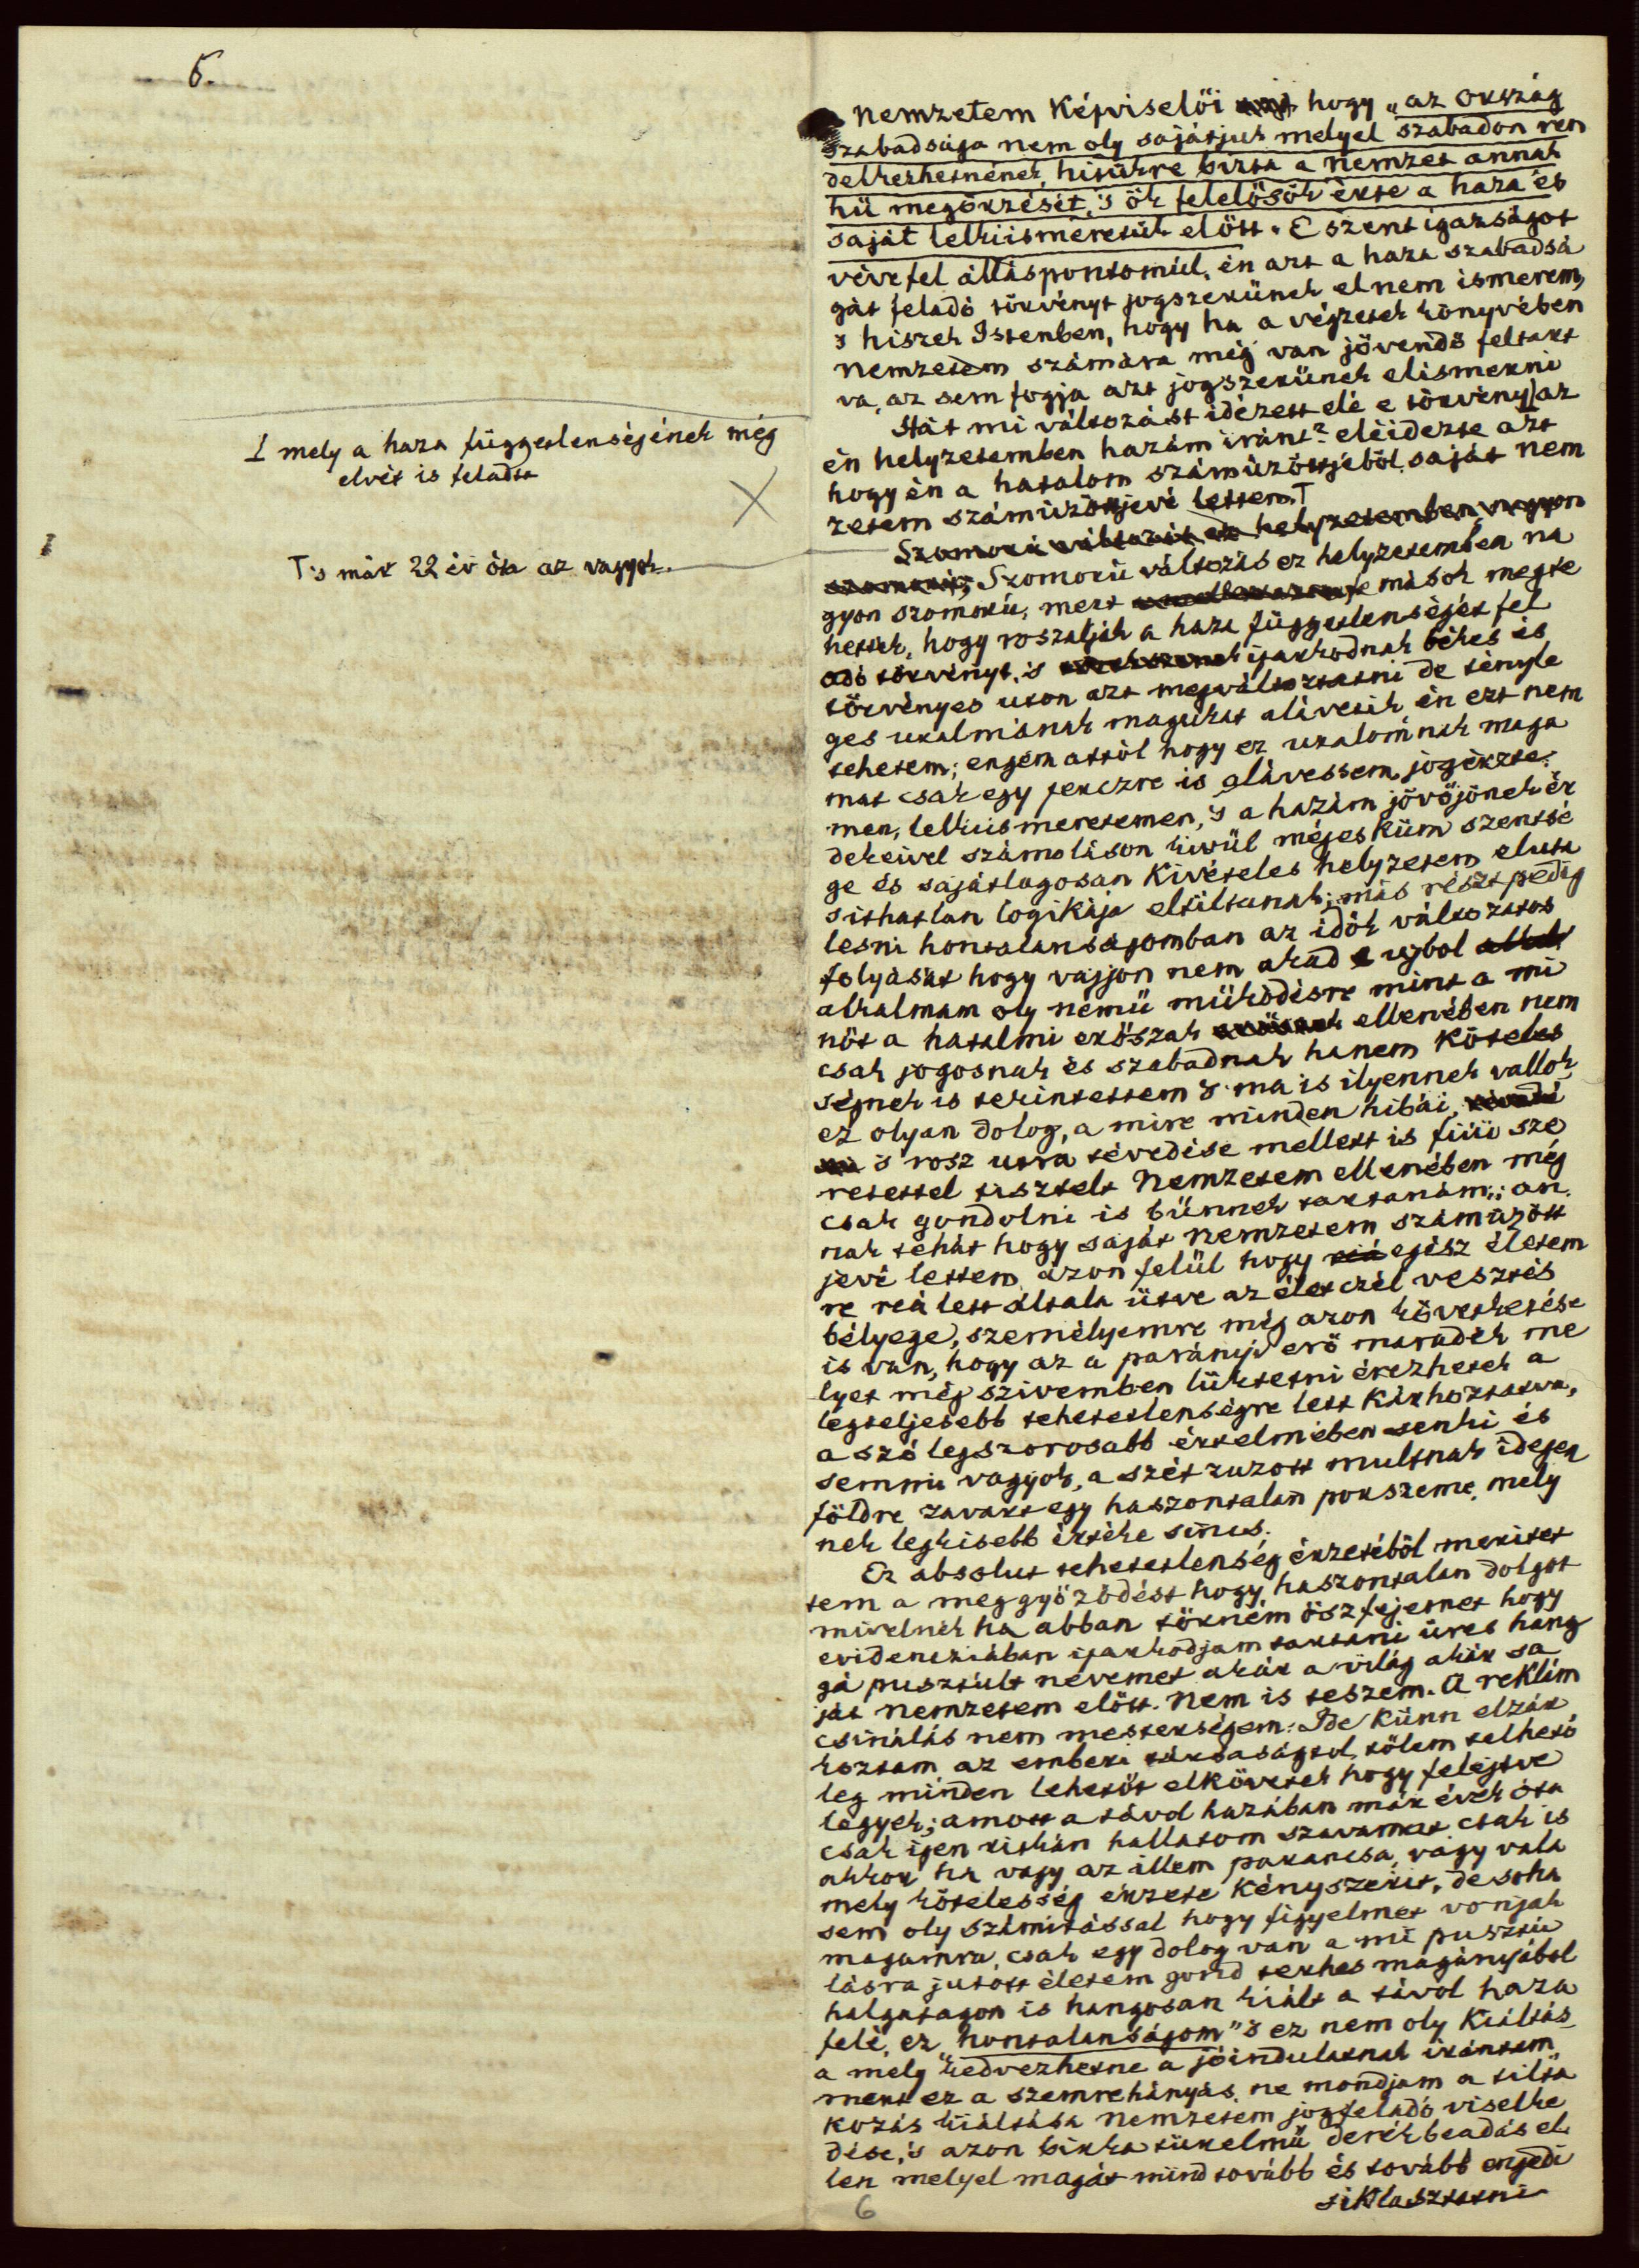 6.
nemzetem Képviselői hogy „az ország
szabadsága nem oly sajátjuk melyel szabadon ren
delkezhetnének, hitükre bizta a nemzet annak
hü megőrzését, 's ők felelősök érte a haza és
saját lelkiismeretük előtt. E szent igazságot
véve fel álláspontomúl, én azt a haza szabadsá
gát feladó törvényt jogszerünek el nem ismerem,
s hiszek Istenben, hogy ha a végzetek könyvében
nemzetem számára még van jövendő feltart
va, az sem fogja azt jogszerünek elismerni
Hát mi változást idézett elé e törvény az
⊥ mely a haza függetlenségének még
elvét is feladta
én helyzetemben hazám iránt? eléidézte azt
hogy én a hatalom számüzöttjéből, saját nem
zetem számüzöttjévé lettem. T
T 's már 22 év óta az vagyok.
Szomorú változás ez helyzetemben nagyon
szomorú; Szomorú változás ez helyzetemben na
gyon szomorú, mert mások megte
hetik, hogy roszalják a haza függetlenségét fel
adó törvényt, 's ijarkodnak békés és
törvényes uton azt megváltoztatni de tényle
ges uralmának magukat alávetik én ezt nem
tehetem; engem attól hogy ez uralomnak maga
mat csak egy perczre is alávessem, jogérzte:
men, lelkiismeretemen, 's a hazám jövőjönek ér
dekeivel számoláson kivül még esküm szentsé
ge és sajátlagosan Kivételes helyzetem eluta
sithatlan logikája eltiltanak; más részt pedig
lesni hontalanságomban az idők változatos
folyását hogy vajjon nem akad e ujbol
alkalmam oly nemü müködésre mint a mi
nőt a hatalmi erőszak ellenében nem
csak jogosnak és szabadnak hanem Köteles
ségnek is tekintettem 's ma is ilyennek vallok,
ez olyan dolog, a mire minden hibái,
's rosz utra tévedése mellett is fiúi sze
retettel tisztelt Nemzetem ellenében még
csak gondolni is bünnek tartanám;; an
nak tehát hogy saját nemzetem számüzött
jévé lettem azon felül hogy reá egész életem
re reá lett általa ütve az életczél vesztés
bélyege, személyemre még azon következése
is van, hogy az a parányi erő maradék me
lyet még szivemben lüktetni érezhetek a
legteljesebb tehetetlenségre lett Kárhoztatva,
a szó legszorosabb értelmében senki és
semmi vagyok, a szét zuzott multnak idegen
földre zavart egy haszontalan porszeme, mely
nek legkisebb értéke sincs.
Ez absolut tehetetlenség érzetéből meritet
tem a meggyőződést hogy haszontalan dolgot
mivelnék ha abban törném ősz fejemet hogy
evidencziában ijarkodjam tartani üres hang
gá pusztult nevemet akár a világ akár sa
ját nemzetem előtt. Nem is teszem. A reklám
csinálás nem mesterségem: Ide Künn elzár
koztam az emberi társaságtol, tőlem telhető
leg minden lehetőt elkövetek hogy felejtve
legyek; amott a távol hazában már évek óta
csak igen ritkán hallatom szavamat csak is
akkor ha vagy az illem parancsa, vagy vala
mely kötelesség érzete Kényszerit, de soha
sem oly számitással hogy figyelmet vonjak
magamra, csak egy dolog van a mi pusztu
lásra jutott életem gond terhes magányából
halgatagon is hangosan kiált a távol haza
felé, ez „hontalanságom" 's ez nem oly Kiáltás
a mely kedvezhetne a jóindulatnak irántam,
mert ez a szemrehányás, ne mondjam a tilta
kozás kiáltása nemzetem jogfeladó viselke
dése, 's azon birka türelmü derék beadás el
len melyel magát mind tovább és tovább engedi
siklasztatni
6